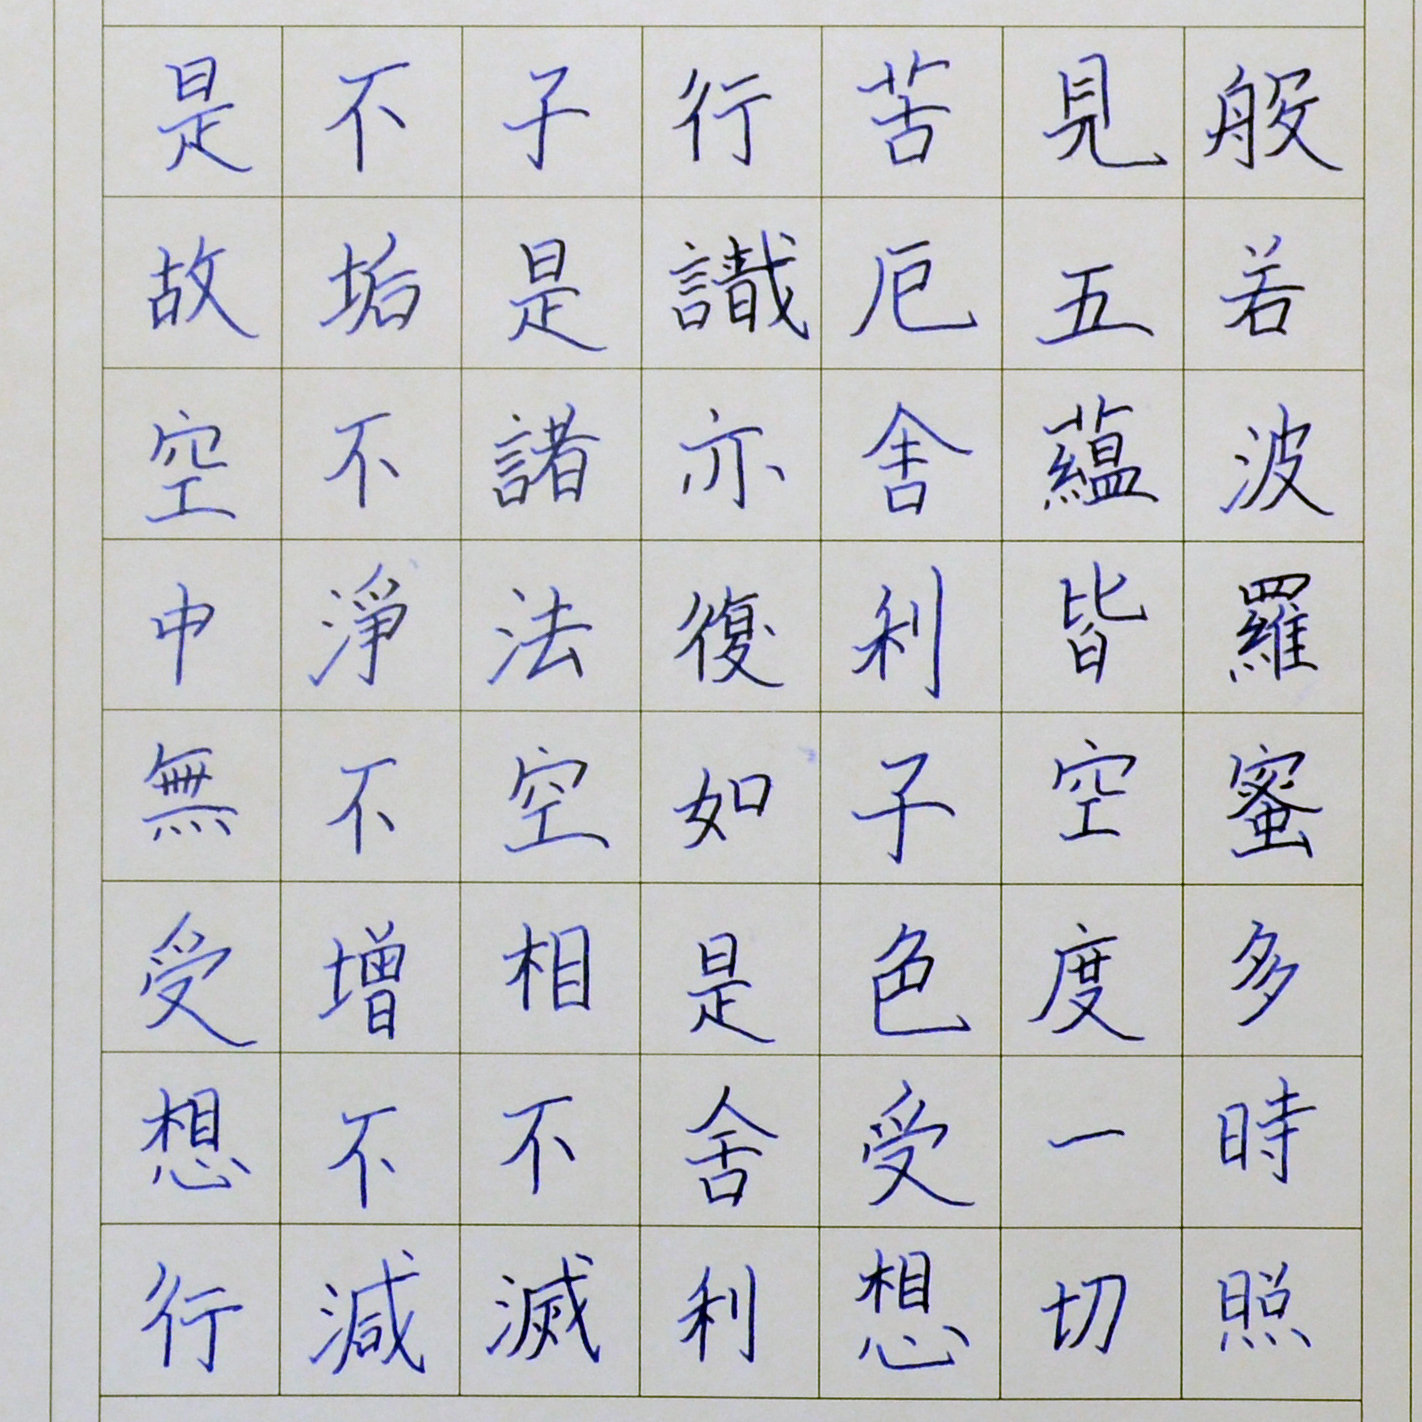 般若波羅蜜多時照
見五蘊皆空度一切
苦厄舍利子色受想
行識亦復如是舍利
子是諸法空相不滅
不垢不淨不增不減
是故空中無受想行